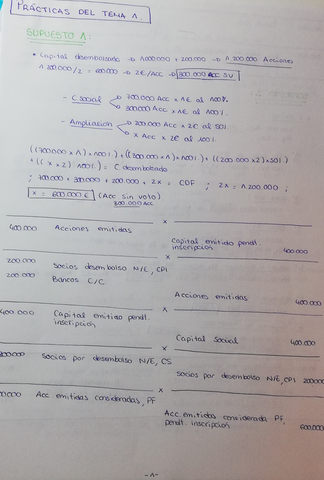 PRÁCTICAS DEL TEMA 1.
SUPUESTO 1:
• Capital desembolsado → 1.000.000 + 200.000 → 1.200.000 Acciones
1.200.000/2 = 600.000 → 2€/Acc → 300.000 Acc SV
- C. social → 700.000 Acc x 1€ al 100%.
→ 300.000 Acc x 1€ al 100%.
- Ampliación → 200.000 Acc x 2€ al 50%.
→ x Acc x 2€ al 100%.
((700.000 x 1) x 100%) + ((300.000 x 1) x 100%) + ((200.000 x 2) x 50%)
+ ((x x 2) 100%) = C. desembolsado
; 700.000 + 300.000 + 200.000 + 2x = CDF ; 2x = 1.200.000 ;
x = 600.000€ (Acc sin voto)
300.000 Acc
x
400.000 Acciones emitidas
Capital emitido pendt. inscripción 400.000
x
200.000 Socios desembolso N/E, CPI
200.000 Bancos C/C
Acciones emitidas 400.000
x
400.000 Capital emitido pendt. inscripción
Capital Social 400.000
x
200.000 Socios por desembolso N/E, CS
Socios por desembolso N/E, CPI 200.000
x
600.000 Acc emitidas consideradas, PF
Acc. emitidas considerada PF, pendt. inscripción 600.000
-1-